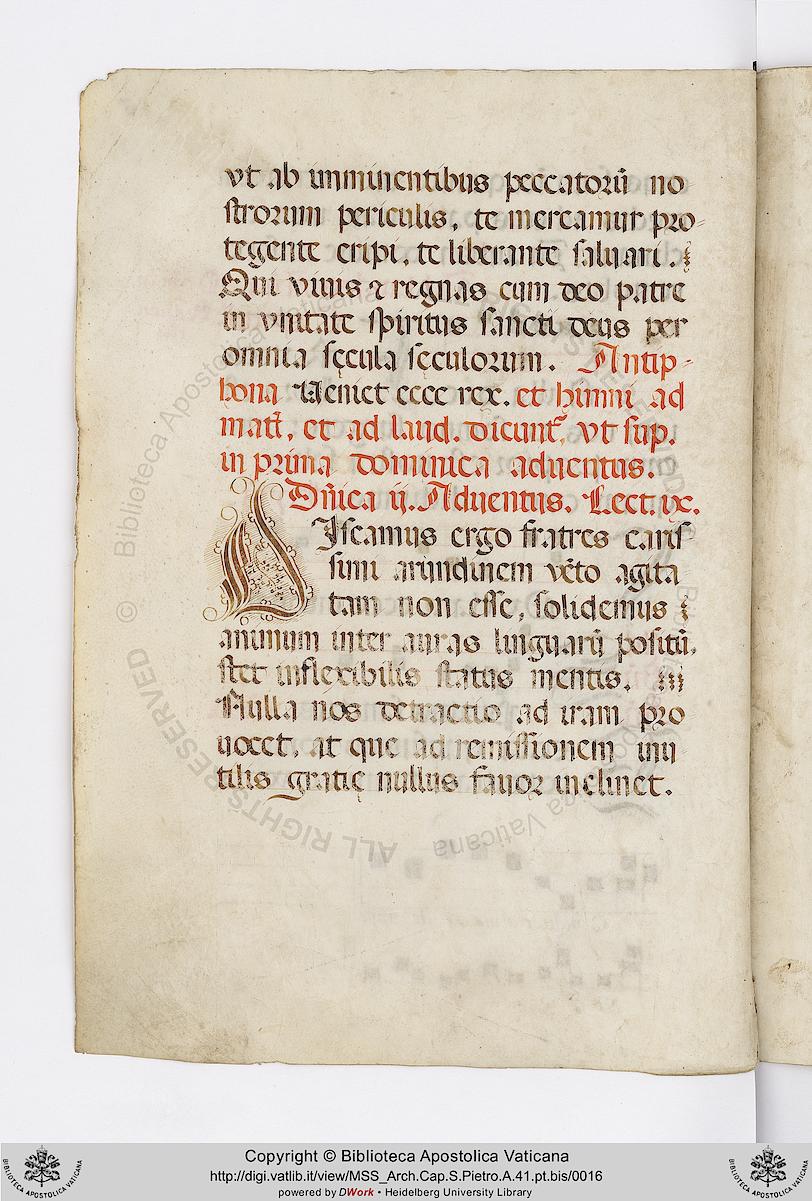 vt ab imminentibus peccatorũ no
strorum periculis, te mereamur pro-
tegente eripi, te liberante saluari.
Qui viuis ⁊ regnas cum deo patre
in vnitate spiritus sancti deus per
omnia sęcula seculorum. Antip-
hona Veniet ecce rex. et himni ad
matt̃, et ad laud. dicunt᷑, vt sup.
in prima dominica aduentus.
Dñica ij. Aduentus. Lect. ix.
DIscamus ergo fratres cariss
simi arundinem vẽto agita
tam non esse, solidemus
animum inter auras linguarũ positũ,
stet inflexibilis status mentis.
Nulla nos detractio ad iram pro
uocet, at que ad remissionem inu
tilis gratię nullus fauor inclinet.
© Biblioteca Apostolica Vaticana
ALL RIGHTS RESERVED
Copyright © Biblioteca Apostolica Vaticana
http://digi.vatlib.it/view/MSS_Arch.Cap.S.Pietro.A.41.pt.bis/0016
powered by DWork • Heidelberg University Library